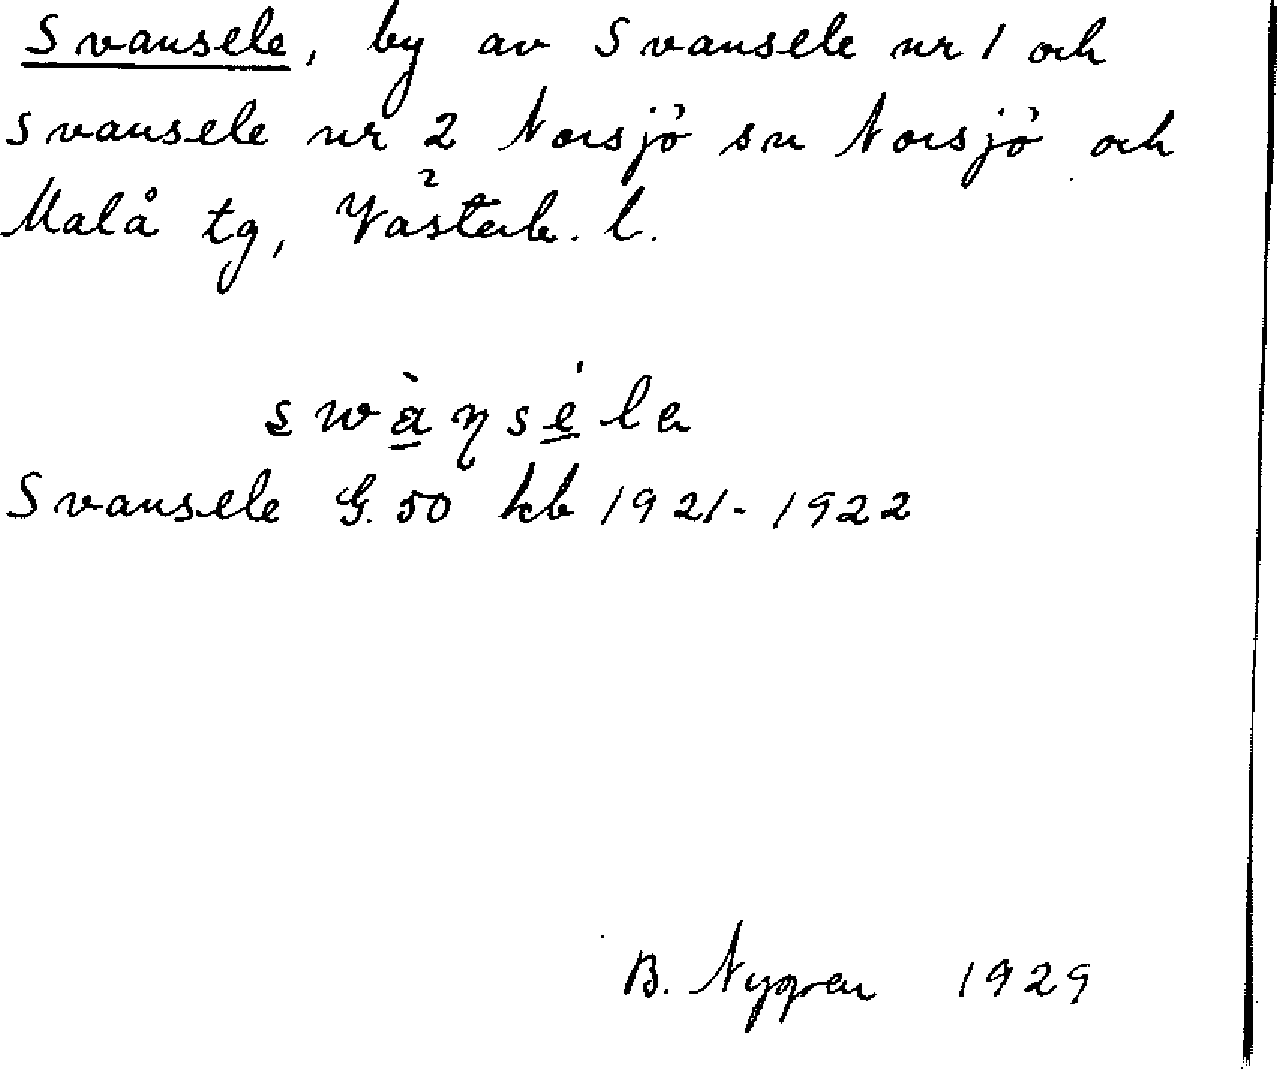 Svansele, by av Svansele nr 1 och
Svansele nr 2 Norsjö sn Norsjö och
Malå tg, Västerb. l.
swàŋséla
Svansele G. 50 kb 1921-1922
B. Nygren 1929